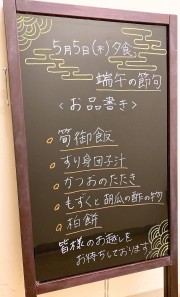 5月5日(木)夕食
端午の節句
<お品書き>
・筍御飯
・すり身団子汁
・かつおのたたき
・もずくと胡瓜の酢の物
・柏餅
皆様のお越しを
お待ちしております